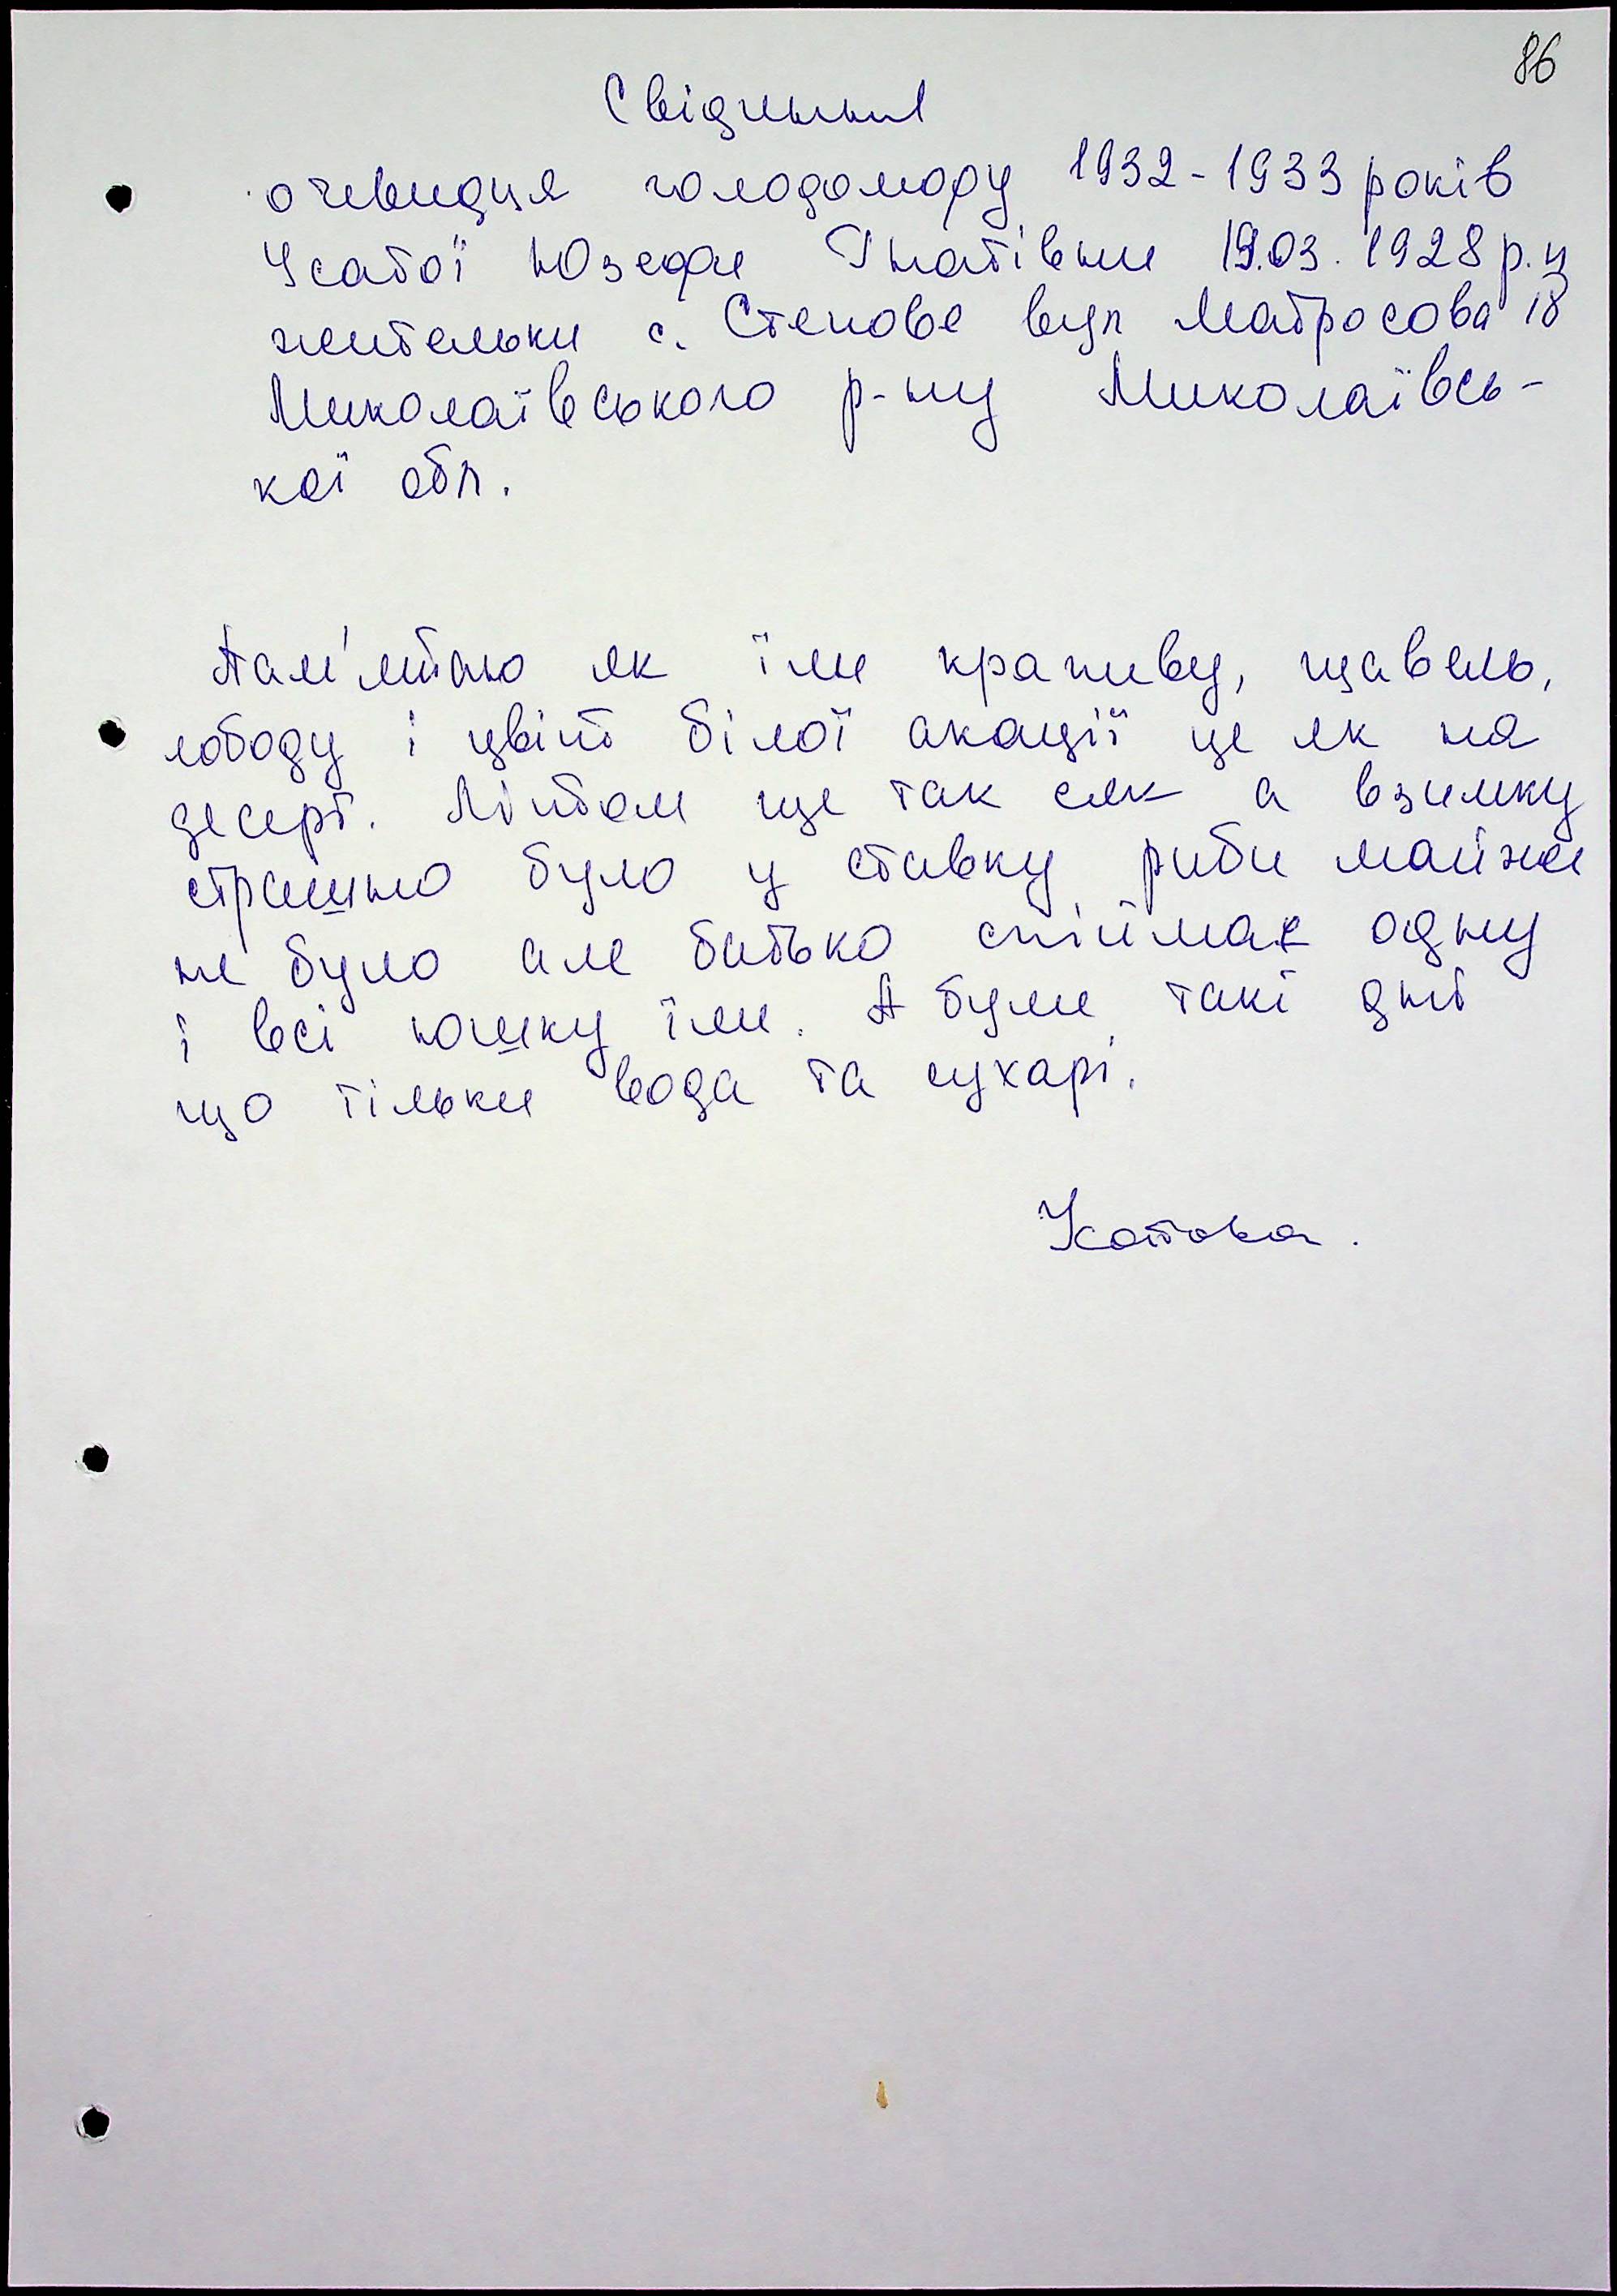 86
Свідчення
очевидця голодомору 1932-1933 років
Усатої Юзефи Гнатівни 19.03.1928 р.
жительки с. Степове вул Матросова 18
Миколаївського р-ну Миколаївсь-
кої обл.
Пам'ятаю як їли крапиву, щавель,
лободу і цвіт білої акації це як на
десерт. Літом ще так сяк а взимку
страшно було у ставку риби майже
не було але батько спіймає одну
і всі юшку їли. А були такі дні
що тільки вода та сухарі.